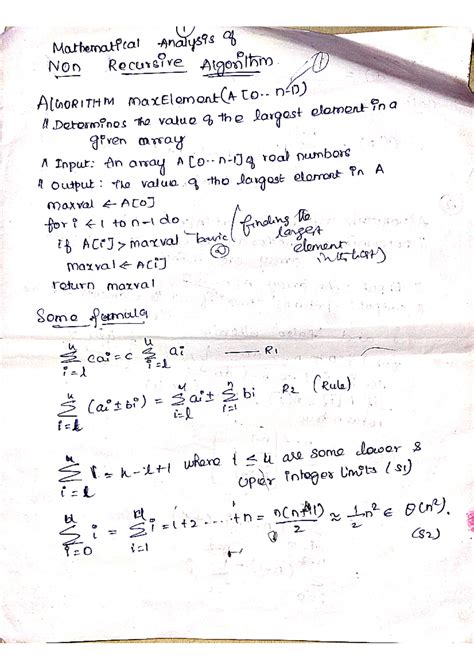 ①
Mathematical Analysis of
Non Recursive Algorithm. ①
ALGORITHM maxElement(A[0..n-1])
// Determines the value of the largest element in a
given array
// Input: An array A[0..n-1] of real numbers
// Output: The value of the largest element in A
maxval ← A[0]
for i ← 1 to n-1 do
if A[i] > maxval basic (finding the
maxval ← A[i] largest
return maxval element
in the list)
Some formula
u∑i=l cai = c u∑i=l ai —— R1
u∑i=l (ai ± bi) = u∑i=l ai ± n∑i=1 bi R2 (Rule)
u∑i=l 1 = u-l+1 where l ≤ u are some lower &
upper integer limits (S1)
∑i=0 i = ∑i=1 i = 1+2.....+n = n(n+1)/2 ≈ 1/2 n² ∈ Θ(n²).
(S2)